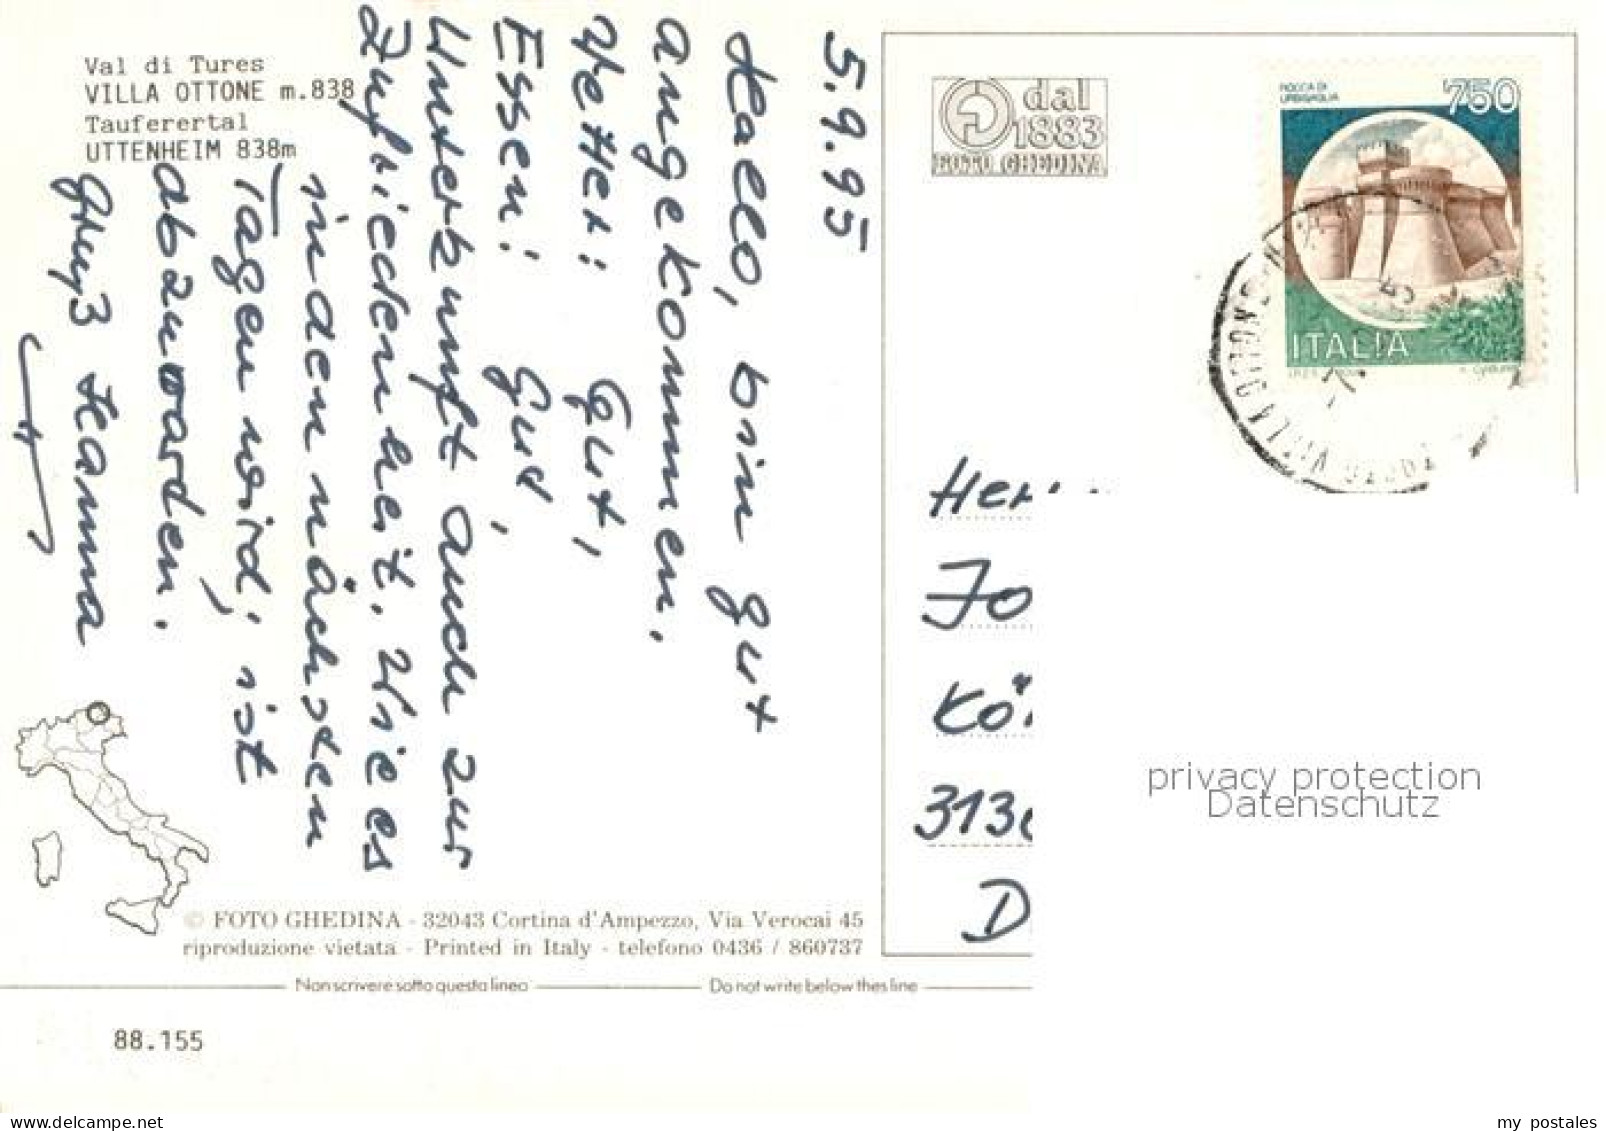 Val di Tures
VILLA OTTONE m.838
Tauferertal
UTTENHEIM 838m
5.9.95
Hallo, bin gut
angekommen.
Wetter: Gut,
Essen: Gut,
Unterkunft auch zur
Zufriedenheit. Wie es
in den nächsten
Tagen wird, ist
abzuwarten.
Gruß Hanna
dal
1883
FOTO GHEDINA
ROCCA DI
URBISAGLIA
750
ITALIA
VILLA OTTONE
Her
Jo
Kö
313
D
privacy protection
Datenschutz
© FOTO GHEDINA - 32043 Cortina d'Ampezzo, Via Verocai 45
riproduzione vietata - Printed in Italy - telefono 0436 / 860737
Non scrivere sotto questa linea
Do not write below thes line
88.155
my postales